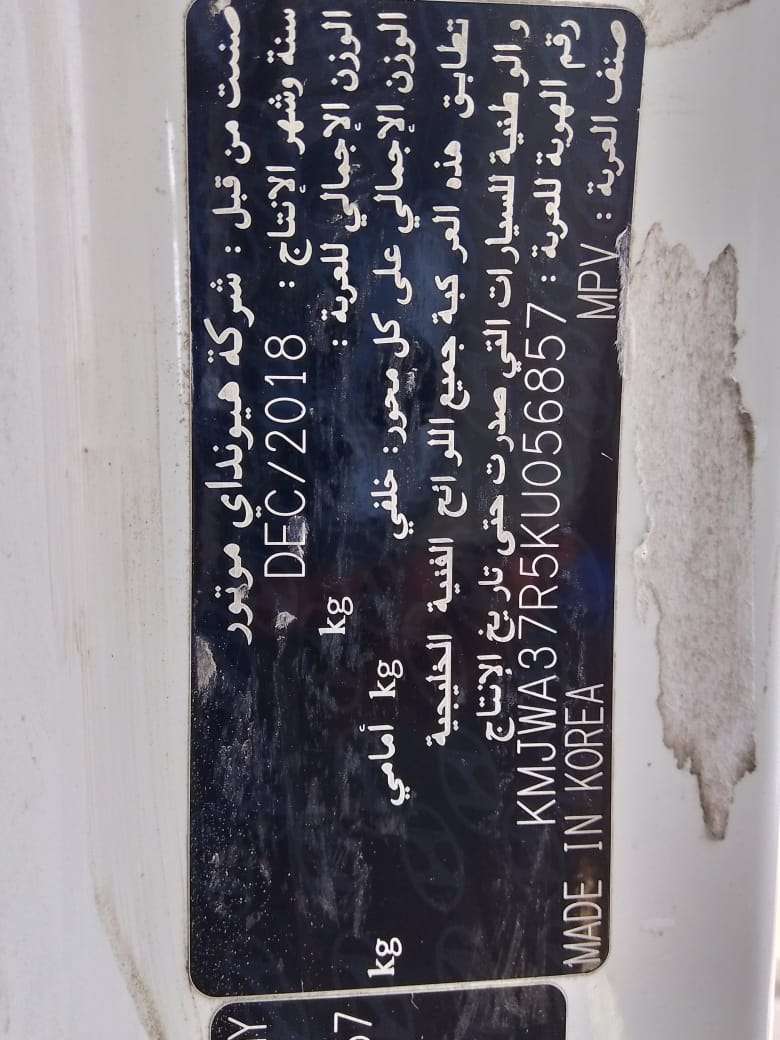 صنعت من قبل : شركة هيونداي موتور
سنة وشهر الإنتاج : DEC/2018
الوزن الإجمالي للعربة : kg
الوزن الإجمالي على كل محور: خلفي kg أمامي kg
تطابق هذه العر كبة جميع اللوائح الفنية الخليجية
و الوطنية للسيارات التي صدرت حتى تاريخ الإنتاج
رقم الهوية للعربة : KMJWA37R5KU056857
صنف العربة : MPV MADE IN KOREA